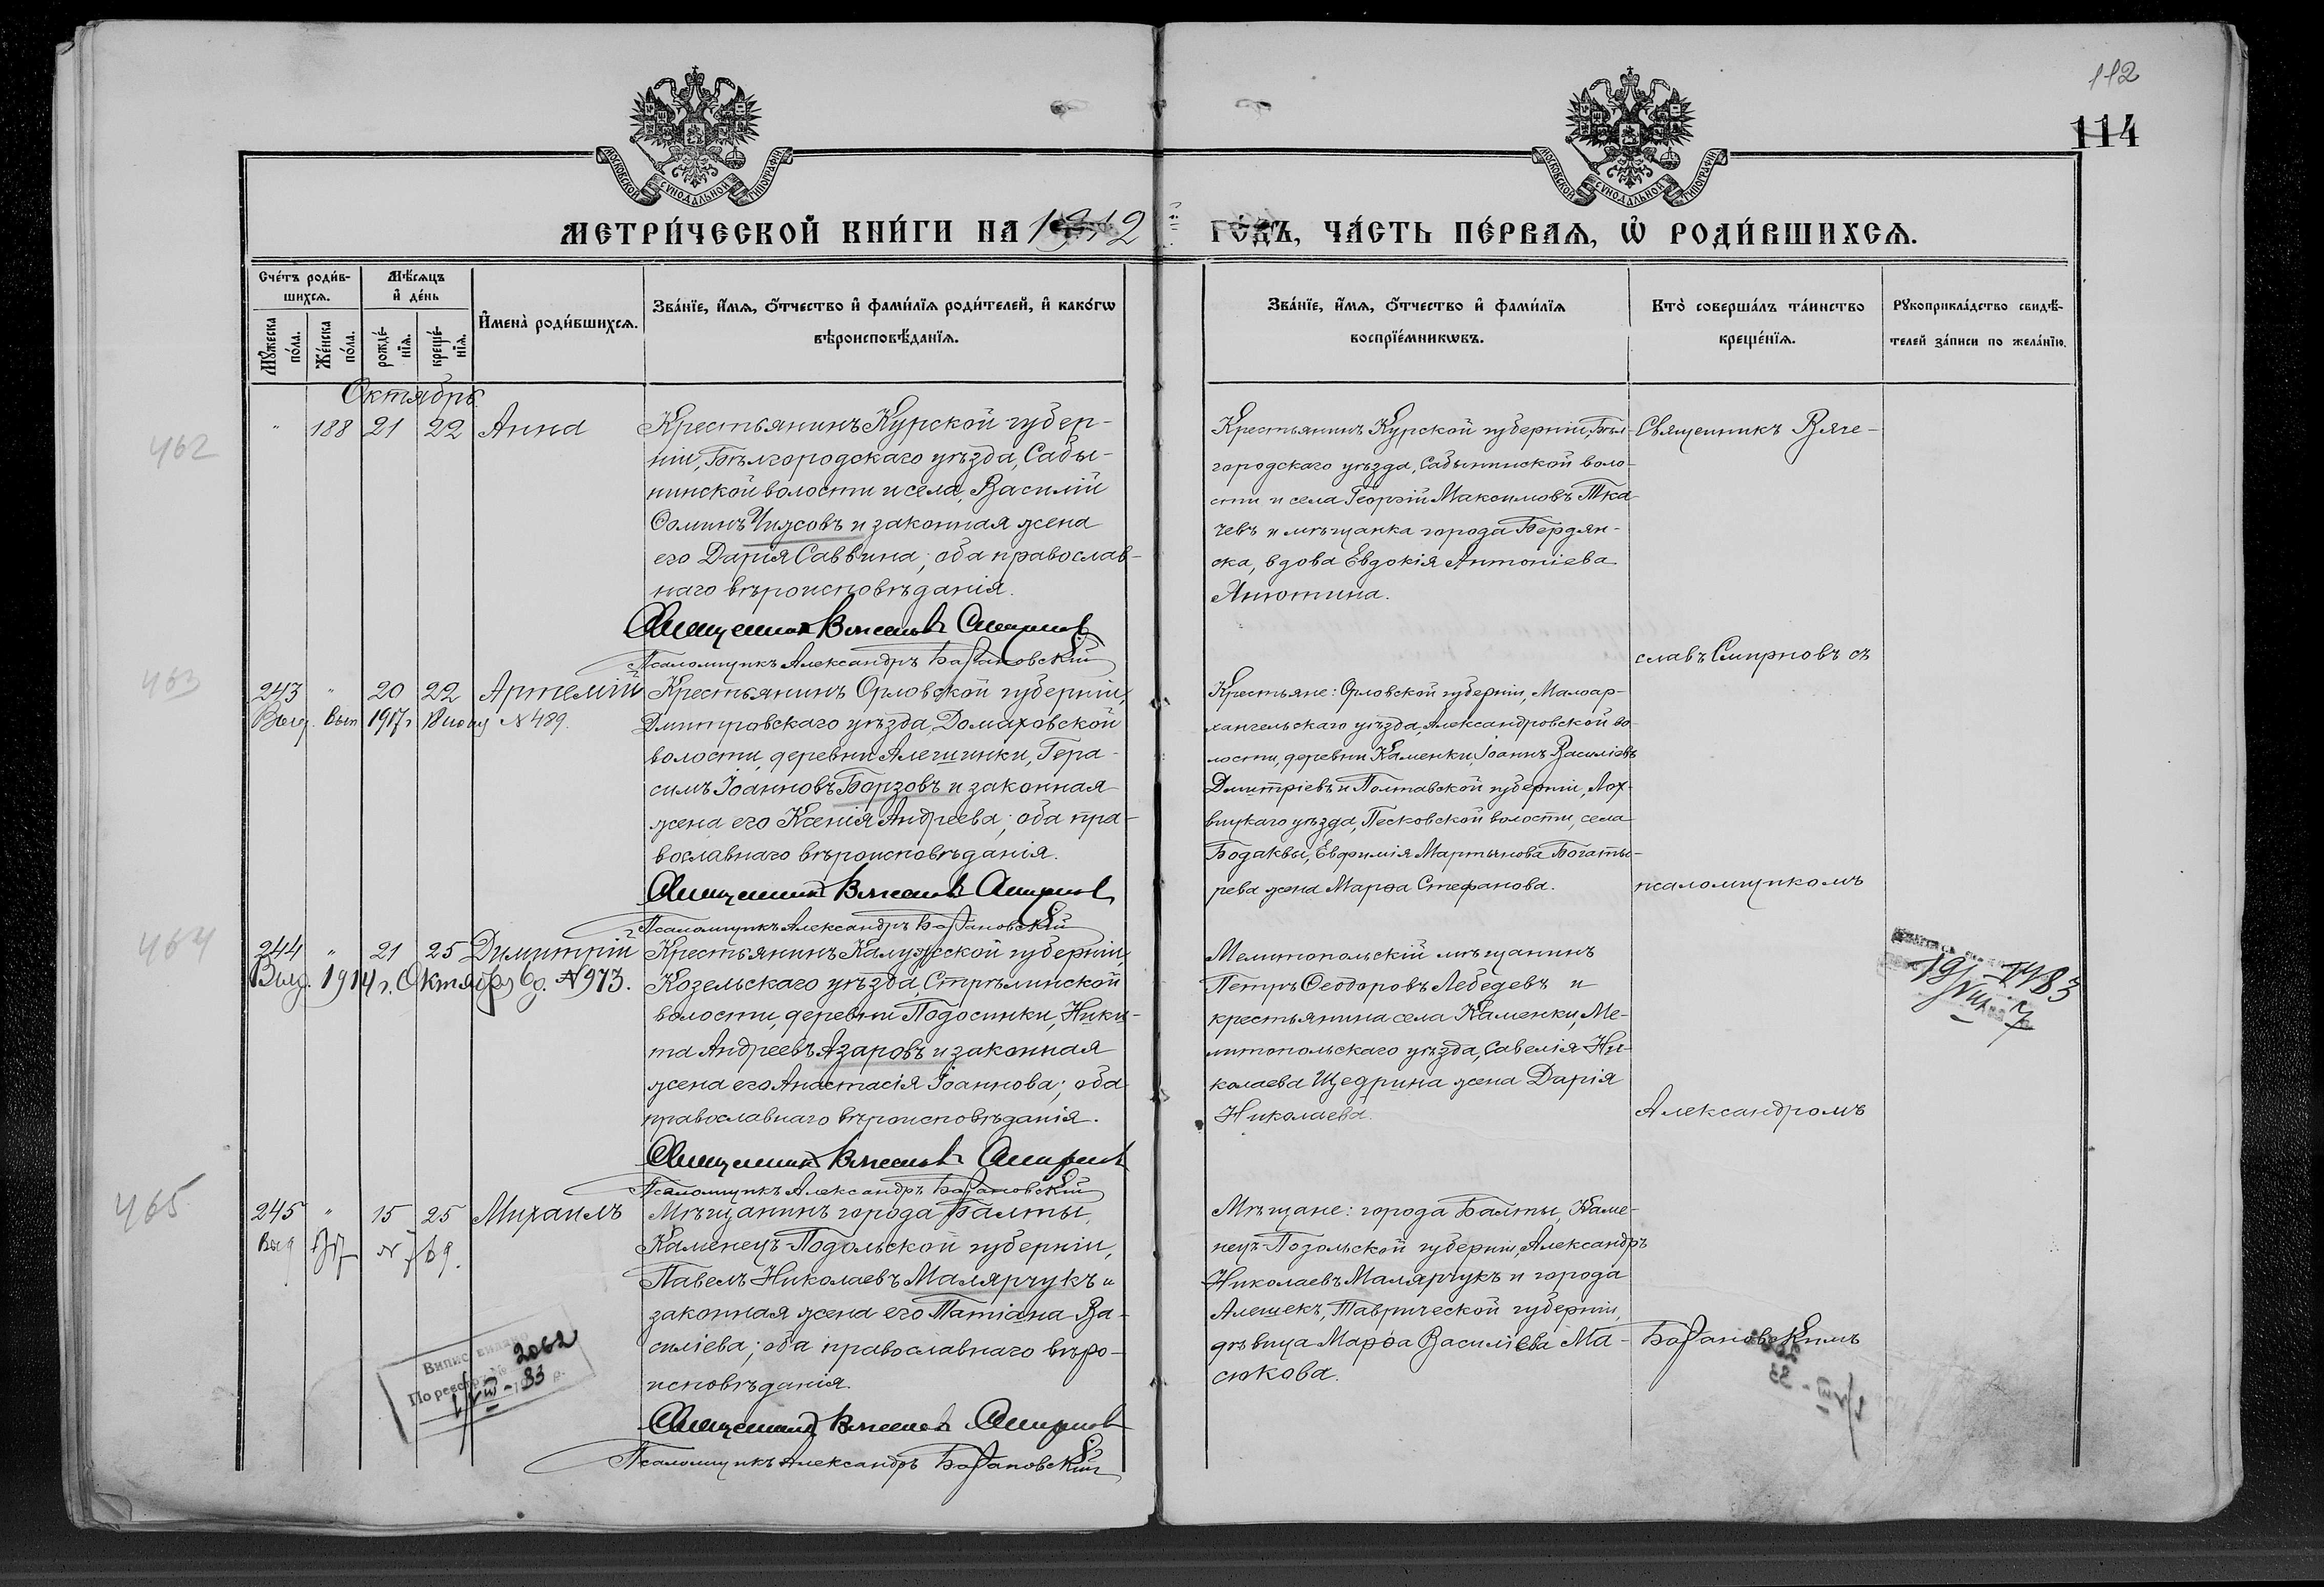 112
114
МОСКОВСКОЙ СѴНОДАЛЬНОЙ ТИПОГРАФІИ
МОСКОВСКОЙ СѴНОДАЛЬНОЙ ТИПОГРАФІИ
МЕТРИ́ЧЕСКОЙ КНИ́ГИ НА 1912 ГО́ДЪ, ЧА́СТЬ ПЕ́РВАѦ, Ѡ҆ РОДИ́ВШИХСѦ.
Сче́тъ роди́в-
шихсѧ.
Мѣ́сѧцъ
и҆ де́нь
Мꙋ́жеска по́ла.
Же́нска по́ла.
рожде́-
нїѧ.
креще́-
нїѧ.
И҆мена̀ роди́вшихсѧ.
Зва́нїе, и҆́мѧ, ѻ҆́тчество и҆ фами́лїѧ роди́телей, и҆ како́гѡ
вѣроисповѣ́данїѧ.
Зва́нїе, и҆́мѧ, ѻ҆́тчество и҆ фами́лїѧ
воспрїе́мникѡвъ.
Кто̀ соверша́лъ та́инство
креще́нїѧ.
Рꙋкоприкла́дство свидѣ́-
телей за́писи по жела́нїю.
Октябрь
462
" 188 21 22 Анна
Крестьянинъ Курской губер-
ніи, Бѣлгородскаго уѣзда, Сабы-
нинской волости и села, Василій
Ѳоминъ Чижовъ и законная жена
его Дарія Саввина; оба православ-
наго вѣроисповѣданія.
Священникъ Вячеславъ Смирновъ
Псаломщикъ Александръ
Крестьянинъ Курской губерніи, Бѣл-
городскаго уѣзда, Сабынинской воло-
сти и села Георгій Максимовъ Тка-
чевъ и мѣщанка города Бердян-
ска, вдова Евдокія Антоніева
Анютина.
Священникъ Вяче-
славъ Смирновъ съ
463
243 " 20 22 Артемій
Выд. вып 1917 г. 18 іюня №489.
Крестьянинъ Орловской губерніи,
Дмитровскаго уѣзда, Домаховской
волости, деревни Алешинки, Гера-
симъ Іоанновъ Борзовъ и законная
жена его Ксенія Андреева; оба пра-
вославнаго вѣроисповѣданія.
Священникъ Вячеславъ Смирновъ
Псаломщикъ Александръ
Крестьяне: Орловской губерніи, Малоар-
хангельскаго уѣзда, Александровской во-
лости, деревни Каменки, Іоаннъ Василіевъ
Димитріевъ и Полтавской губерніи, Лох-
вицкаго уѣзда, Песковской волости, села
Бодаквы, Евфимія Мартынова Богаты-
рева жена Марѳа Стефанова.
псаломщикомъ
464
244 " 21 25 Димитрій
Выд. 1914 г. Октября 6 д. №973.
Крестьянинъ Калужской губерніи,
Козельскаго уѣзда, Стрѣлинской
волости, деревни Подосинки, Ники-
та Андреевъ Азаровъ и законная
жена его Анастасія Іоаннова; оба
православнаго вѣроисповѣданія.
Священникъ Вячеславъ Смирновъ
Псаломщикъ Александръ
Мелитопольскій мѣщанинъ
Петръ Ѳеодоровъ Лебедевъ и
крестьянина села Каменки, Ме-
литопольскаго уѣзда, Савелія Ни-
колаева Щедрина жена Дарія
Николаева.
Александромъ
465
245 " 15 25 Михаилъ
Выд № 769.
Мѣщанинъ города Балты,
Каменецъ-Подольской губерніи,
Павелъ Николаевъ Малярчукъ и
законная жена его Татіана Ва-
силіева; оба православнаго вѣро-
исповѣданія.
Священникъ Вячеславъ Смирновъ
Псаломщикъ Александръ
Мѣщане: города Балты, Каме-
нецъ-Подольской губерніи, Александръ
Николаевъ Малярчукъ и города
Алешекъ, Таврической губерніи,
дѣвица Марѳа Василіева Ма-
сюкова.
По реестру № 2062
VIII - 33